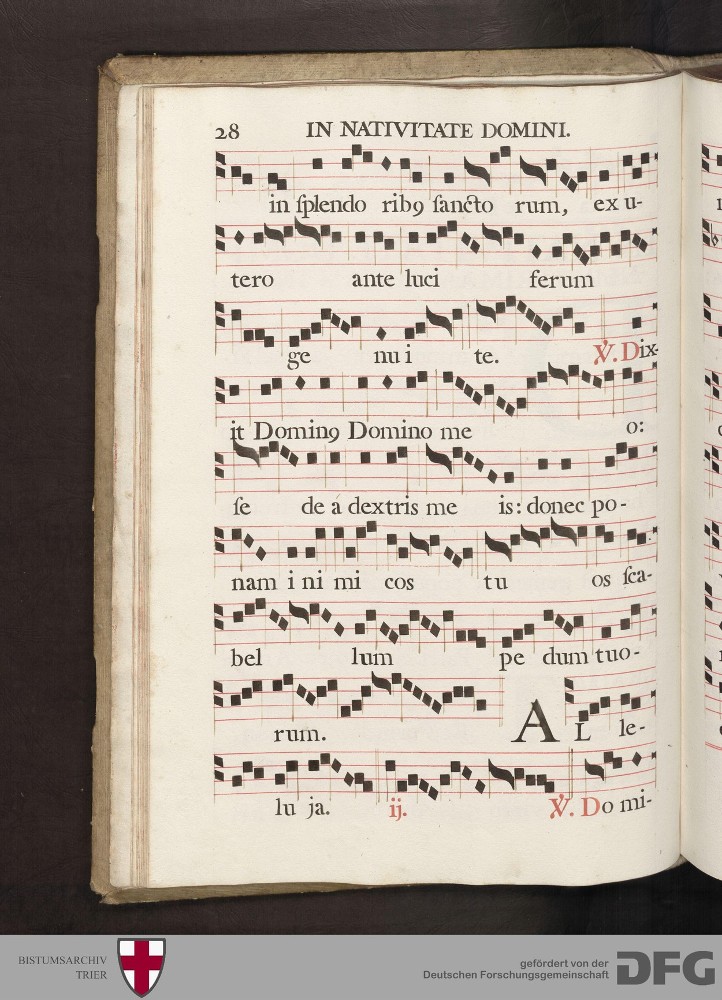 28 IN NATIVITATE DOMINI.
in ſplendo ribꝯ ſancto rum, ex u-
tero ante luci ferum
ge nu i te. ℣. Dix-
it Dominꝯ Domino me o:
ſe de á dextris me is: donec po-
nam i ni mi cos tu os ſca-
bel lum pe dum tuo-
rum. A L le-
lu ja. ij. ℣. Do mi-
BISTUMSARCHIV
TRIER
gefördert von der
Deutschen Forschungsgemeinschaft
DFG